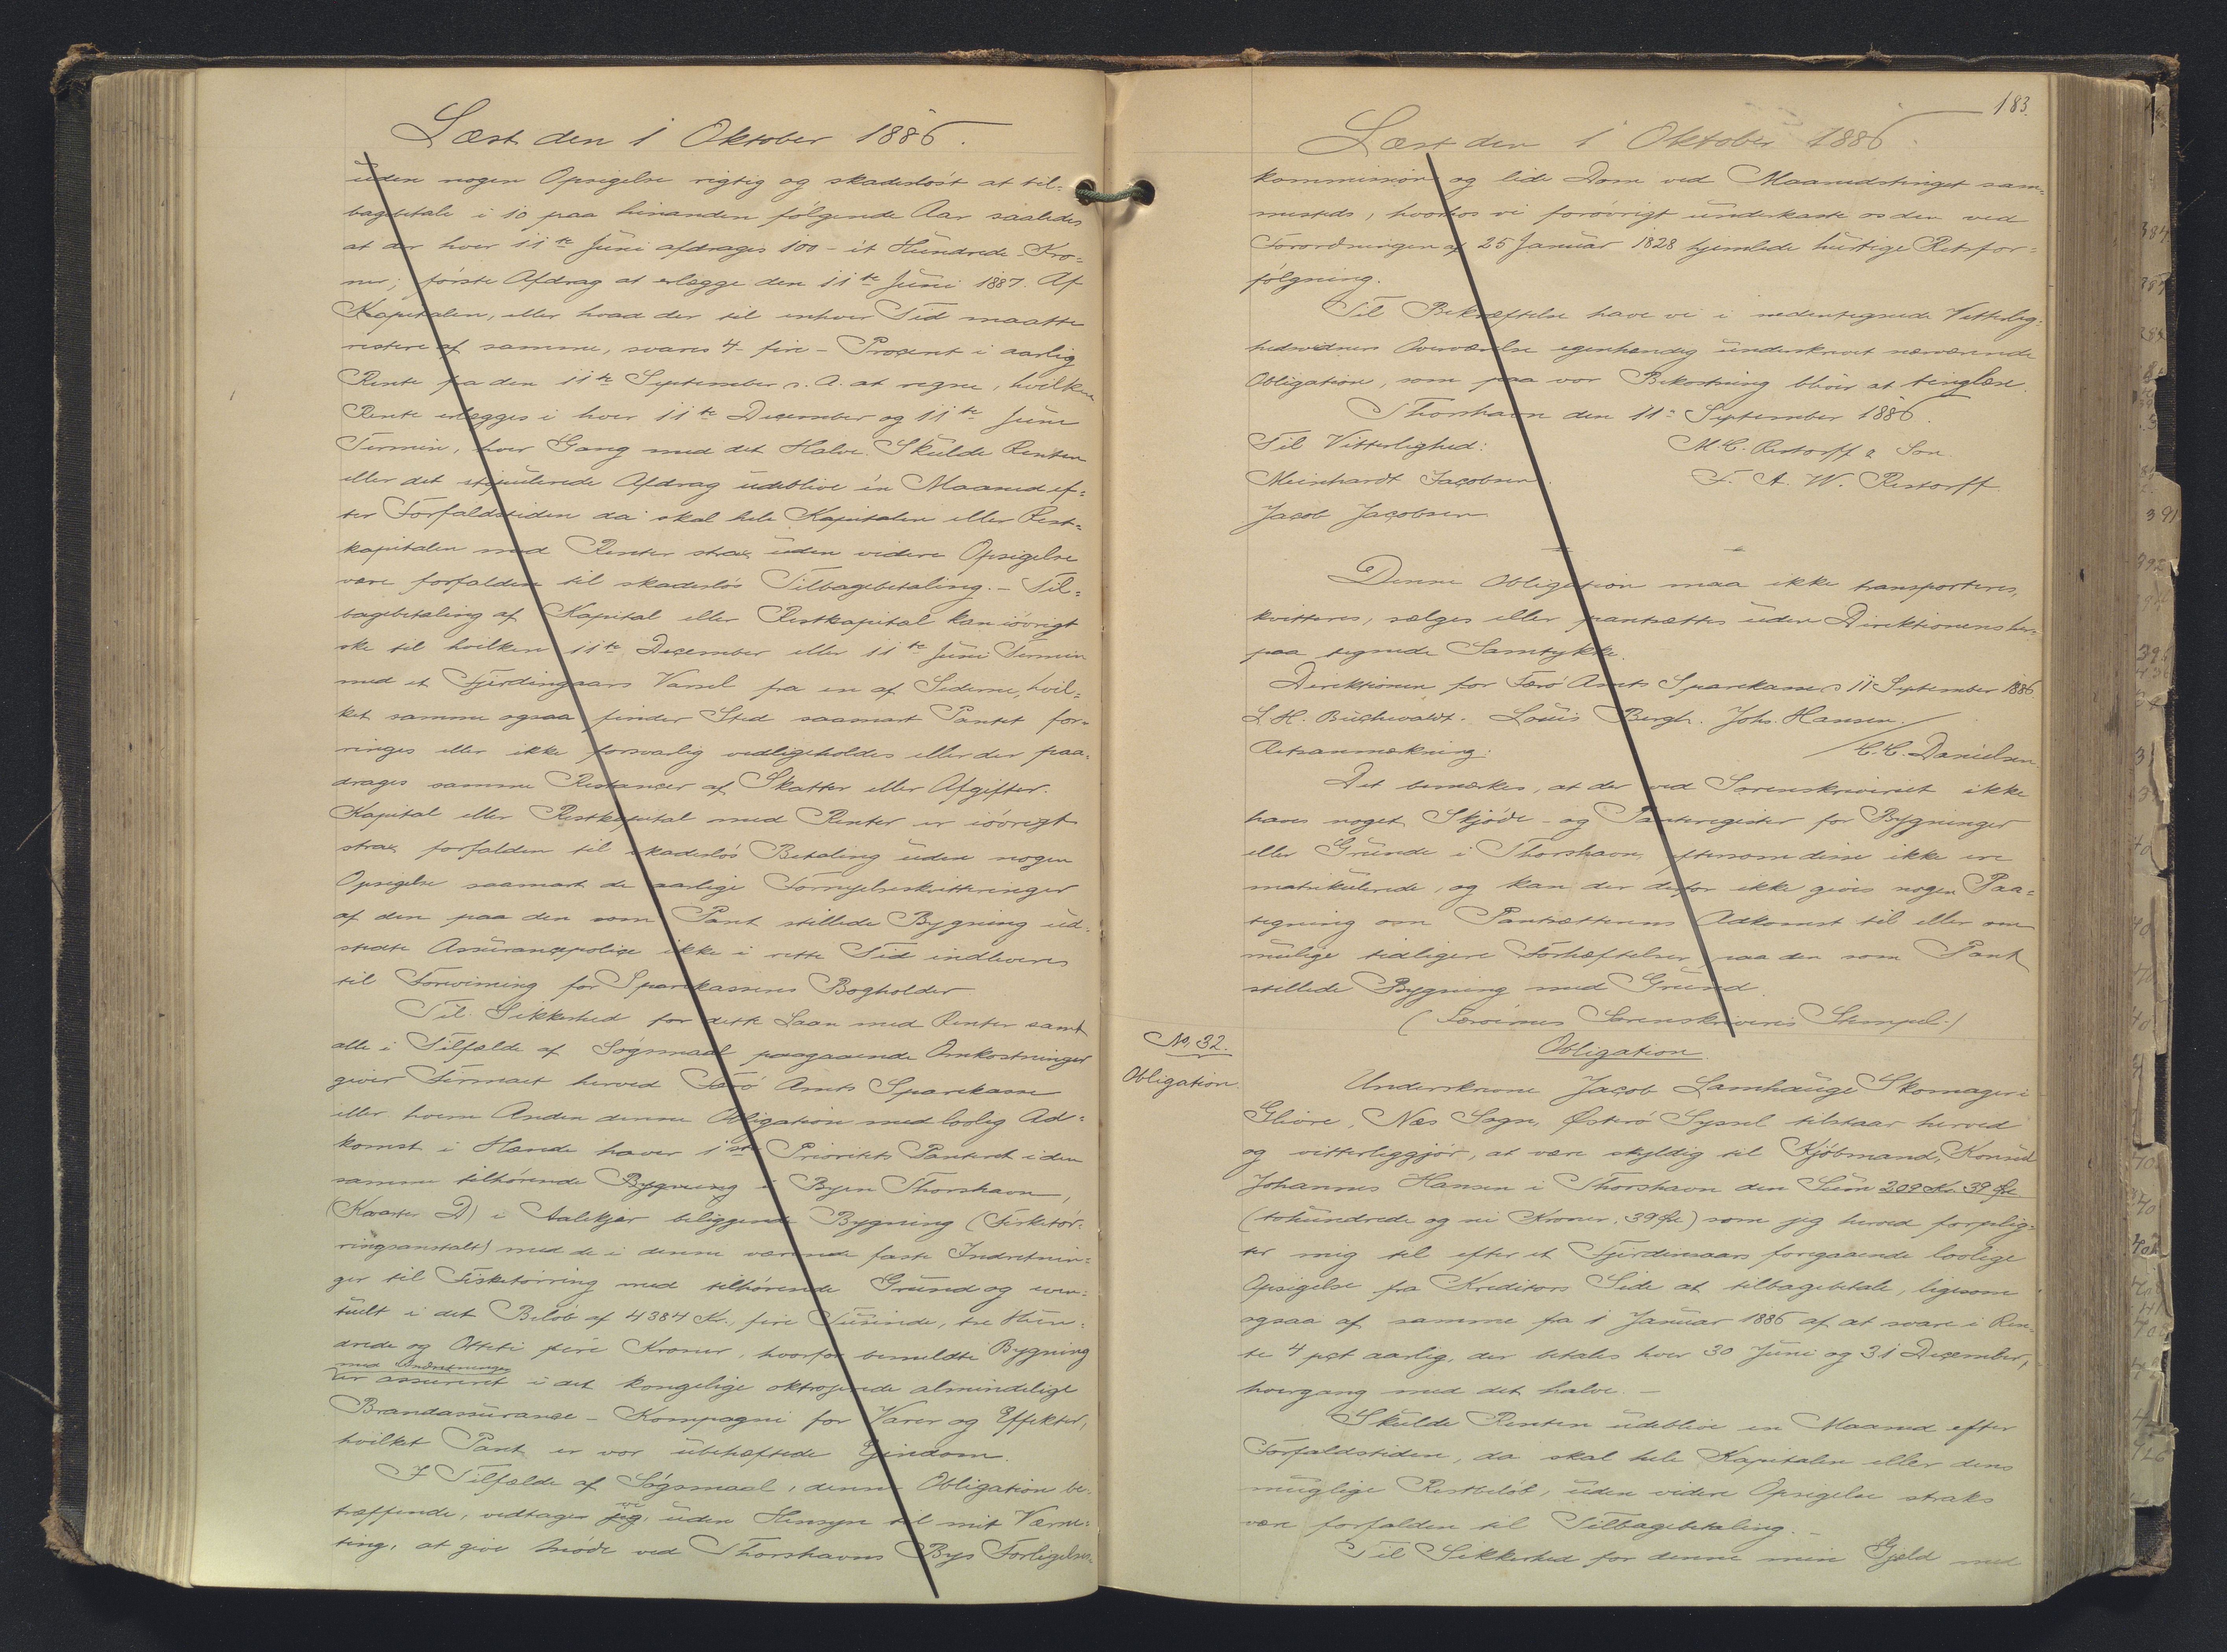 Læst den 1 Oktober 1886.
uden nogen Opsigelse rigtig og skadesløst at til-
bagebetale i 10 paa hinanden følgende Aar saaledes
at der hver 11te Juni afdrages 100 - ét Hundrede - Kro-
ner; første Afdrag at erlægge den 11te Juni 1887. Af
Kapitalen, eller hvad der til enhver Tid maatte
restere af samme, svares 4 - fire - Procent i aarlig
Rente fra den 11te September d. A. at regne, hvilken
Rente erlægges i hver 11te December og 11te Juni
Termin, hver Gang med det Halve. Skulde Renten
eller det stipulerede Afdrag udeblive én Maaned ef-
ter Forfaldstiden da skal hele Kapitalen eller Rest-
kapitalen med Renter strax uden videre Opsigelse
være forfalden til skadesløs Tilbagebetaling. - Til-
bagebetaling af Kapital eller Restkapital kan iøvrigt
ske til hvilken 11te December eller 11te Juni Termin
med et Fjerdingaars Varsel fra en af Siderne, hvil-
ket samme ogsaa finder Sted saasnart Pantet for-
ringes eller ikke forsvarlig vedligeholdes eller der paa-
drages samme Restancer af Skatter eller Afgifter.
Kapital eller Restkapital med Renter er iøvrigt
strax forfalden til skadesløs Betaling uden nogen
Opsigelse saasnart de aarlige Fornyelseskvitteringer
af den paa den som Pant stillede Bygning ud-
stedte Assurancepolice ikke i rette Tid indleveres
til Forevisning for Sparekassens Bogholder
Til Sikkerhed for dette Laan med Renter samt
alle i Tilfælde af Søgsmaal paagaaende Omkostninger
giver Firmaet herved Færø Amts Sparekasse
eller hvem Anden denne Obligation med lovlig Ad-
komst i Hænde haver 1ste Prioritets Panteret i den
samme tilhørende Bygning i Byen Thorshavn,
(Kvarter D) i Aalekjær beliggende Bygning (Fisketør-
ringsanstalt) med de i denne værende faste Indretnin-
ger til Fisketørring med tilhørende Grund og even-
tuelt i det Beløb af 4384 Kr., fire Tusinde, tre Hun-
drede og Otteti fire Kroner, hvorfor bemeldte Bygning
med Indretninger
er assureret i det kongelige oktrojerede almindelige
Brandassurance - Kompagni for Varer og Effekter,
hvilket Pant er vor ubehæftede Ejendom.
I Tilfælde af Søgsmaal, denne Obligation be-
træffende, vedtager jeg vi uden Hensyn til mit Værne-
ting, at give Møde ved Thorshavns Bys Forligelses-
183.
Læst den 1 Oktober 1886.
kommission og lide Dom ved Maanedstinget sam-
mesteds, hvorhos vi forøvrigt underkaste os den ved
Forordningen af 25 Januar 1828 hjemlede hurtige Retsfor-
følgning.
Til Bekræftelse have vi i nedentegnede Vitterlig-
hedsvidners Overværelse egenhændig underskrevet nærværende
Obligation, som paa vor Bekostning bliver at tinglæse.
Thorshavn den 11- September 1886.
Til Vitterlighed: M. C. Restorff & Søn.
Meinhardt Jacobsen. F. A. W. Restorff
Jacob Jacobsen
Denne Obligation maa ikke transporteres,
kvitteres, sælges eller pantsættes uden Direktionens her-
paa tegnede Samtykke.
Direktionen for Færø Amts Sparekasse, 11 September 1886.
L. H. Buchwaldt. Louis Bergh. Johs. Hansen.
Retsanmærkning: / C. C. Danielsen
Det bemærkes, at der ved Sorenskriveriet ikke
haves noget Skjøde- og Panteregister for Bygninger
eller Grunde i Thorshavn, eftersom disse ikke ere
matrikulerede, og kan der derfor ikke gives nogen Paa-
tegning om Pantsætterens Adkomst til eller om
mulige tidligere Forhæftelser paa den som Pant
stillede Bygning med Grund.
(Færøernes Sorenskriveris Stempel.)
No. 32.
Obligation
Obligation.
Underskrevne Jacob Lamhauge Skomager i
Glivre, Næs Sogn, Østerø Syssel tilstaar herved
og vitterliggjør, at være skyldig til Kjøbmand, Konsul
Johannes Hansen i Thorshavn den Sum 209 Kr. 39 Øre
(tohundrede og ni Kroner, 39 Øre) som jeg herved forplig-
ter mig til efter et Fjerdensaars foregaaende lovlige
Opsigelse fra Kreditors Side at tilbagebetale, ligesom
ogsaa af samme fra 1 Januar 1886 af at svare i Ren-
te 4 pct aarlig, der betales hver 30 Juni og 31 December,
hvergang med det halve. -
Skulde Renten udeblive en Maaned efter
Forfaldstiden, da skal hele Kapitalen eller dens
muglige Restbeløb, uden videre Opsigelse straks
være forfalden til Tilbagebetaling. -
Til Sikkerhed for denne min Gjæld med